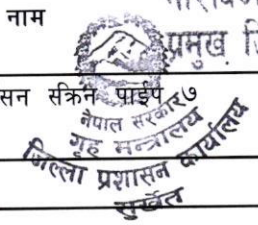 नाम
प्रमुख जि
सन सक्रिन पाईप ७
नेपाल सरकार
गृह मन्त्रालय
जिल्ला प्रशासन कार्यालय
सुर्खेत